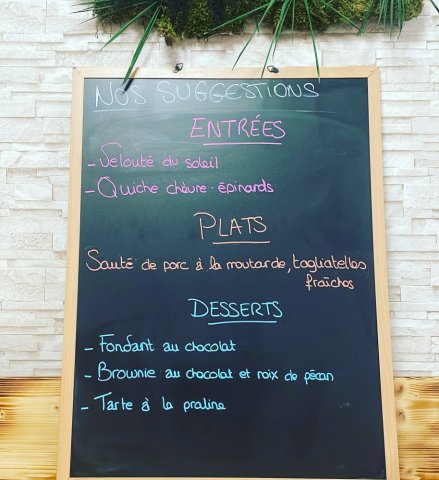 NOS SUGGESTIONS
ENTRÉES
- Velouté du soleil
- Quiche chèvre-épinards
PLATS
Sauté de porc à la moutarde, tagliatelles
fraîches
DESSERTS
- Fondant au chocolat
- Brownie au chocolat et noix de pécan
- Tarte à la praline